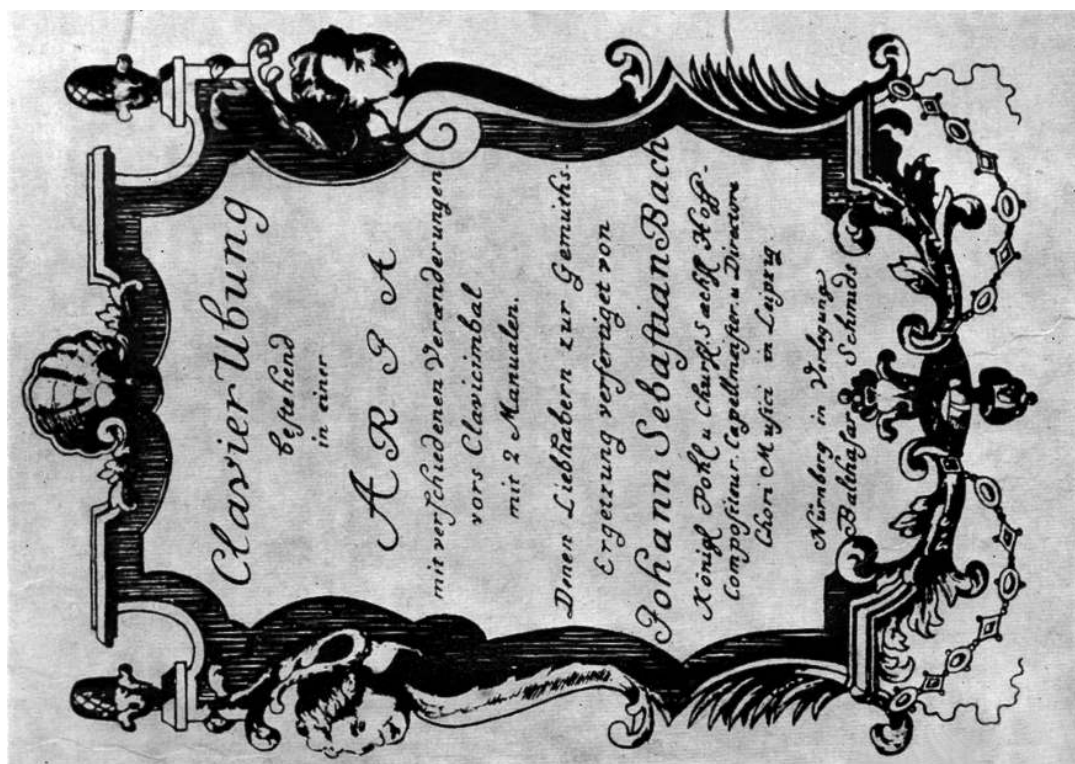 Clavier Ubung
bestehend
in einer
ARIA
mit verschiedenen Verænderungen
vors Clavicimbal
mit 2 Manualen.
Denen Liebhabern zur Gemüths-
Ergetzung verfertiget von
Johann Sebastian Bach
Königl. Pohl. u. Churfl. Sæchsl. Hoff-
Compositeur, Capellmeister, u. Directore
Chori Musici in Leipzig.
Nürnberg in Verlegung
Balthasar Schmids